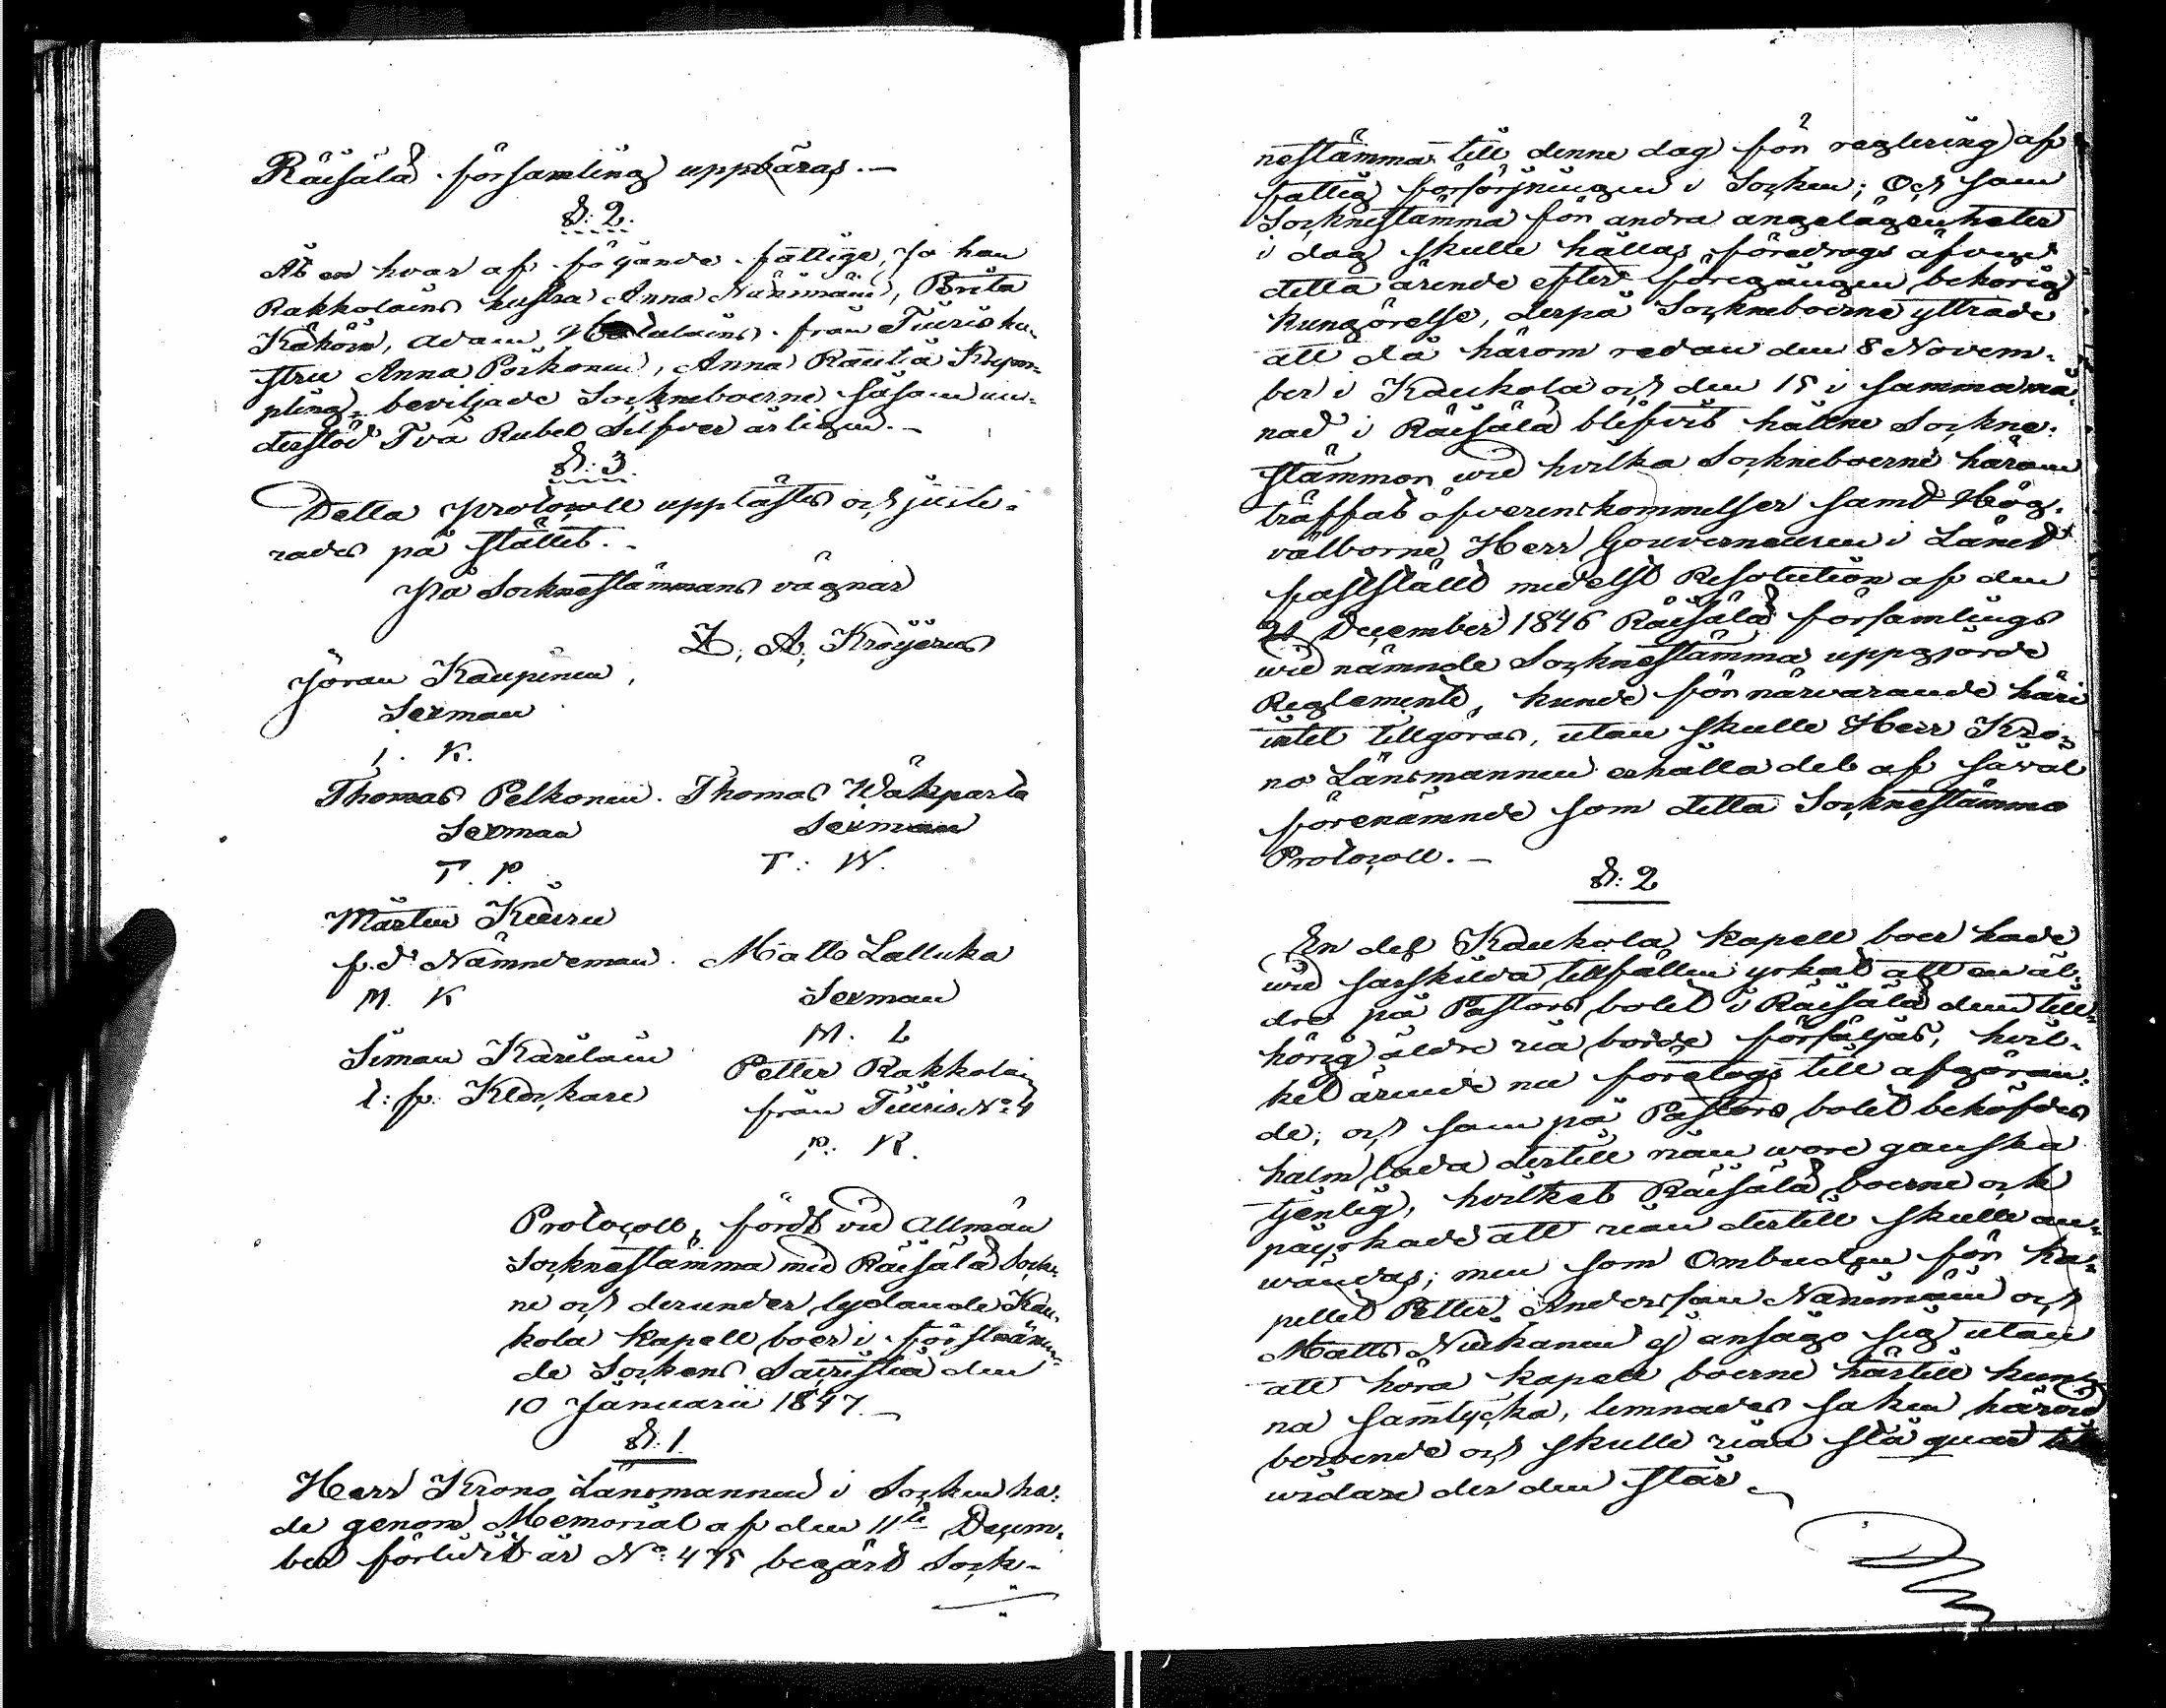 Räisälä församling uppbäras.—
§: 2.
Åt en hvar af följande fattige, Johan
Rakkolains hustru Anna Nänimäin, Brita
Kähöin, Adam från Tiuris hu-
stru Anna Pöihönen, Anna Rautia
beviljade Sockneboerne såsom un-
derstöd Två Rubel Silfver årligen.—
§: 3.
Detta protocoll upplästes och juste-
rades på stället.—
På Socknestämmans vägnar
Z. A. Kröyerus
Jöran Kaupinen,
Sexman
J. K.
Thomas Pelkonen. Thomas Wäkiparta
Sexman Sexman
T. P. T: W.
Mårten Kiuru
f.d. Nämndeman. Matts Lalluka
M. K Sexman
M. L
Simon Karilain Petter Rakkolain
t: f: Klockare från Tiuris No 4
P. R.
Protocoll, fördt vid Allmän
Socknestämma med Räisälä Sock-
ne och derunder lydande Kau-
kola Kapell boer i förstnämn-
de Sockens Sacristia den
10 Januarii 1847.—
§: 1.
Herr Krono Länsmannen i Socken ha-
de genom Memorial af den 11te Decem-
ber förlidit år No: 475 begärt Sock-
nestämma till denne dag för reglering af
fattig försörjningen i Socken; Och som
Socknestämma för andra angelägenheter
i dag skulle hållas, föredrogs äfven
detta ärende efter föregången behörig
kungörelse, derpå Sockneboerne yttrade
att då härom redan den 8 Novem-
ber i Kaukola och den 15 i samma må-
nad i Räisälä blifvit hållne Sockne-
stämmor, wid hvilka Sockneboerne härom
träffat öfverenskommelser samt Hög-
välborne Herr Gouverneuren i Länet
fastställt medelst Resolution af den
21 December 1846 Räisälä församlings
wid nämnde Socknestämma uppgjorde
Reglemente, kunde för närvarande häri
intet tillgöras, utan skulle Herr Kro-
no Länsmannen erhålla del af såväl
förenämnde som detta Socknestämmo
Protocoll.—
§: 2
En del Kaukola Kapell boer hade
wid särskilda tillfällen yrkat att en äl-
dre på Pastors bolet i Räisälä dem till-
hörig äldre ria borde försäljas, hvil-
ket ärende nu företogs till afgöran-
de; och som på Pastors bolet behöfdes
halm lada dertill rian wore ganska
tjenlig, hvilket Räisälä boerne och
påyrkade att rian dertill skulle an-
wändas; men som Ombuden för Ka-
pellet Petter Andersson Nänimäin och
Matts Nukanen ej ansågo sig utan
att höra kapell boerne härtill kun-
na samtycka, lemnades saken härvid
beroende och skulle rian stå quar till
widare der den står.